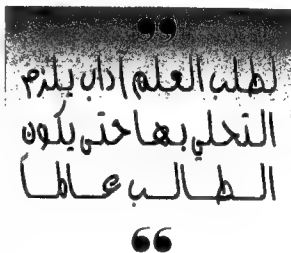 لطلب العلم آداب يلزم
التحلي بها حتى يكون
الطالب عالماً